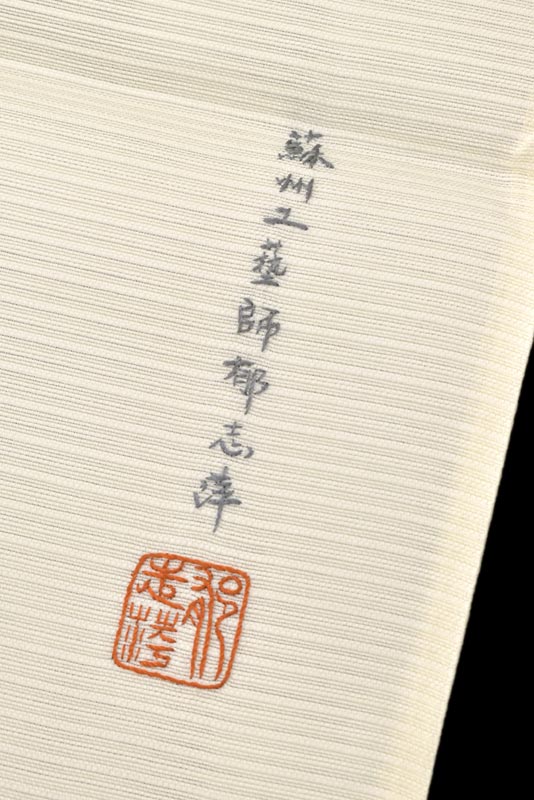 蘇州工藝師郁志萍
郁志萍